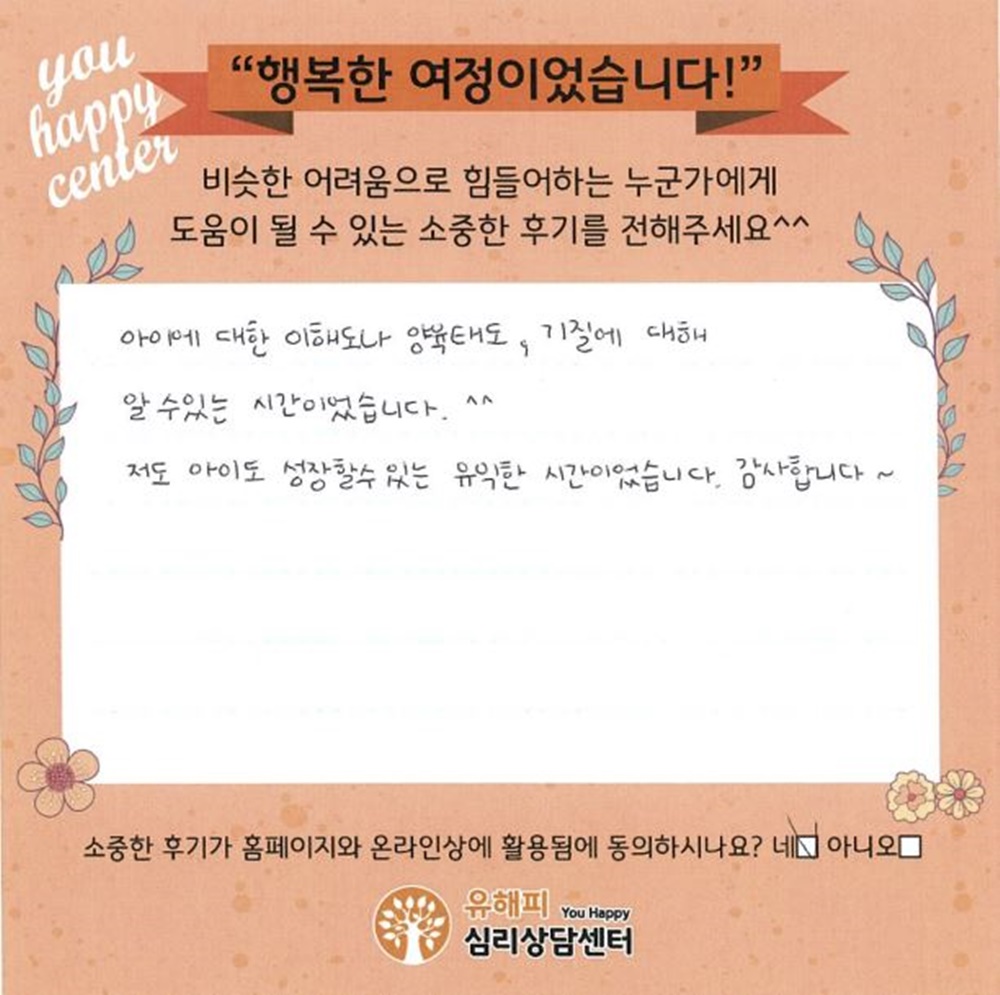 you
happy
center
“행복한 여정이었습니다!”
비슷한 어려움으로 힘들어하는 누군가에게
도움이 될 수 있는 소중한 후기를 전해주세요^^
아이에 대한 이해도나 양육태도, 기질에 대해
알 수있는 시간이었습니다. ^^
저도 아이도 성장할수 있는 유익한 시간이었습니다. 감사합니다~
소중한 후기가 홈페이지와 온라인상에 활용됨에 동의하시나요? 네 아니오
유해피 You Happy
심리상담센터